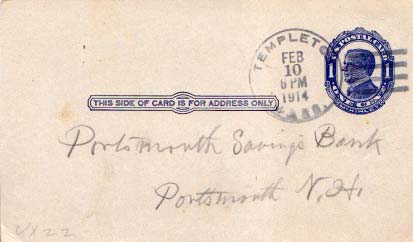 TEMPLETON
FEB
10
6 PM
1914
MASS.
U.S. POSTAL CARD
1 1
THIS SIDE OF CARD IS FOR ADDRESS ONLY
Portsmouth Savings Bank
Portsmouth N.H.
UX22